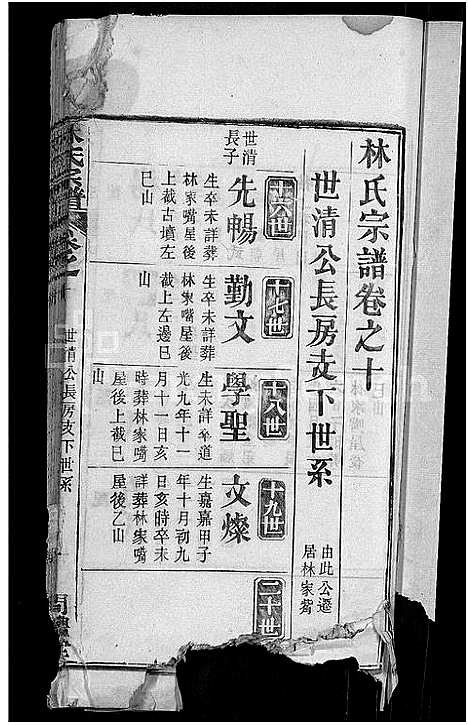 林氏宗譜卷之十
世清公長房支下世系
由此公遷
居林家嘴
十六世
十七世
十八世
十九世
二十世
世清
長子
先暢
生卒未詳葬
林家嘴屋後
上截古墳左
巳山
勤文
生卒未詳葬
林家嘴屋後
截上左邊巳
山
學聖
生未詳卒道
光九年十一
月十一日亥
時葬林家嘴
屋後上截巳
山
文燦
生嘉慶甲子
年十月初九
日亥時卒未
詳葬林家嘴
屋後乙山
林氏宗譜
卷之十
世清公長房支下世系